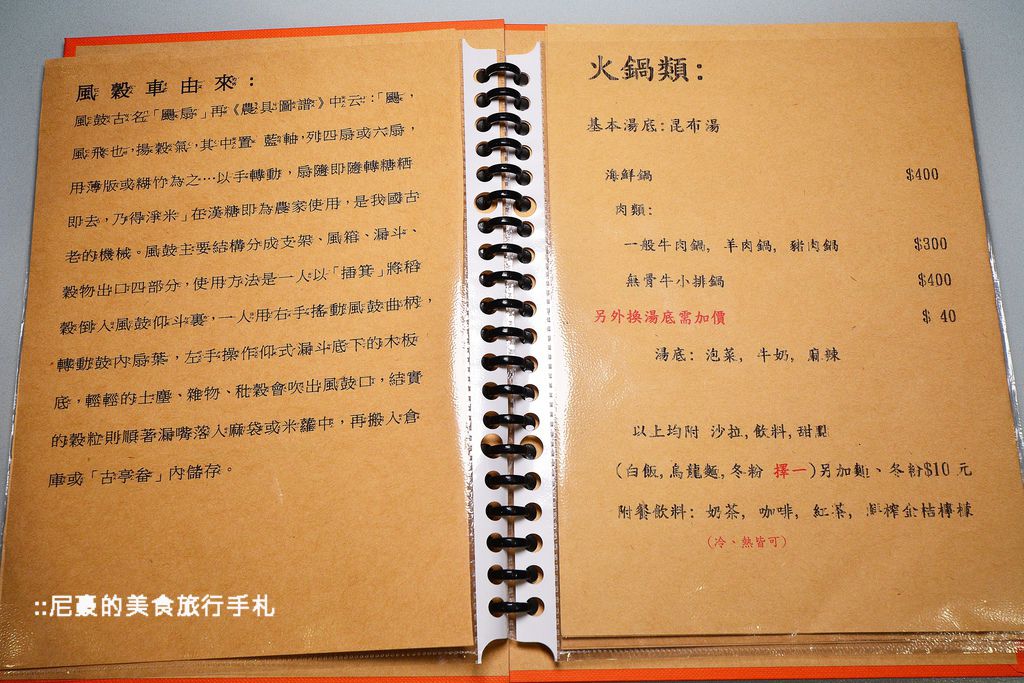 風穀車由來：
風鼓古名「颺扇」再《農具圖譜》中云：「颺，
風飛也，揚穀氣，其中置 藍軸，列四扇或六扇，
用薄版或糊竹為之…以手轉動，扇隨即隨轉糠粞
即去，乃得淨米」在漢糖即為農家使用，是我國古
老的機械。風鼓主要結構分成支架、風箱、漏斗、
穀物出口四部分，使用方法是一人以「插箕」將稻
穀倒入風鼓仰斗裏，一人用右手搖動風鼓曲柄，
轉動鼓內扇葉，左手操作仰式漏斗底下的木板
底，輕輕的土塵、雜物、秕穀會吹出風鼓口，結實
的穀粒則順著漏嘴落入麻袋或米籮中，再搬入倉
庫或「古亭畚」內儲存。
火鍋類：
基本湯底：昆布湯
海鮮鍋 $400
肉類：
一般牛肉鍋, 羊肉鍋, 豬肉鍋 $300
無骨牛小排鍋 $400
另外換湯底需加價 $ 40
湯底：泡菜, 牛奶, 麻辣
以上均附 沙拉,飲料,甜點
(白飯,烏龍麵,冬粉 擇一)另加麵、冬粉$10 元
附餐飲料：奶茶, 咖啡, 紅茶, 鮮榨金桔檸檬
(冷、熱皆可)
::尼豪的美食旅行手札